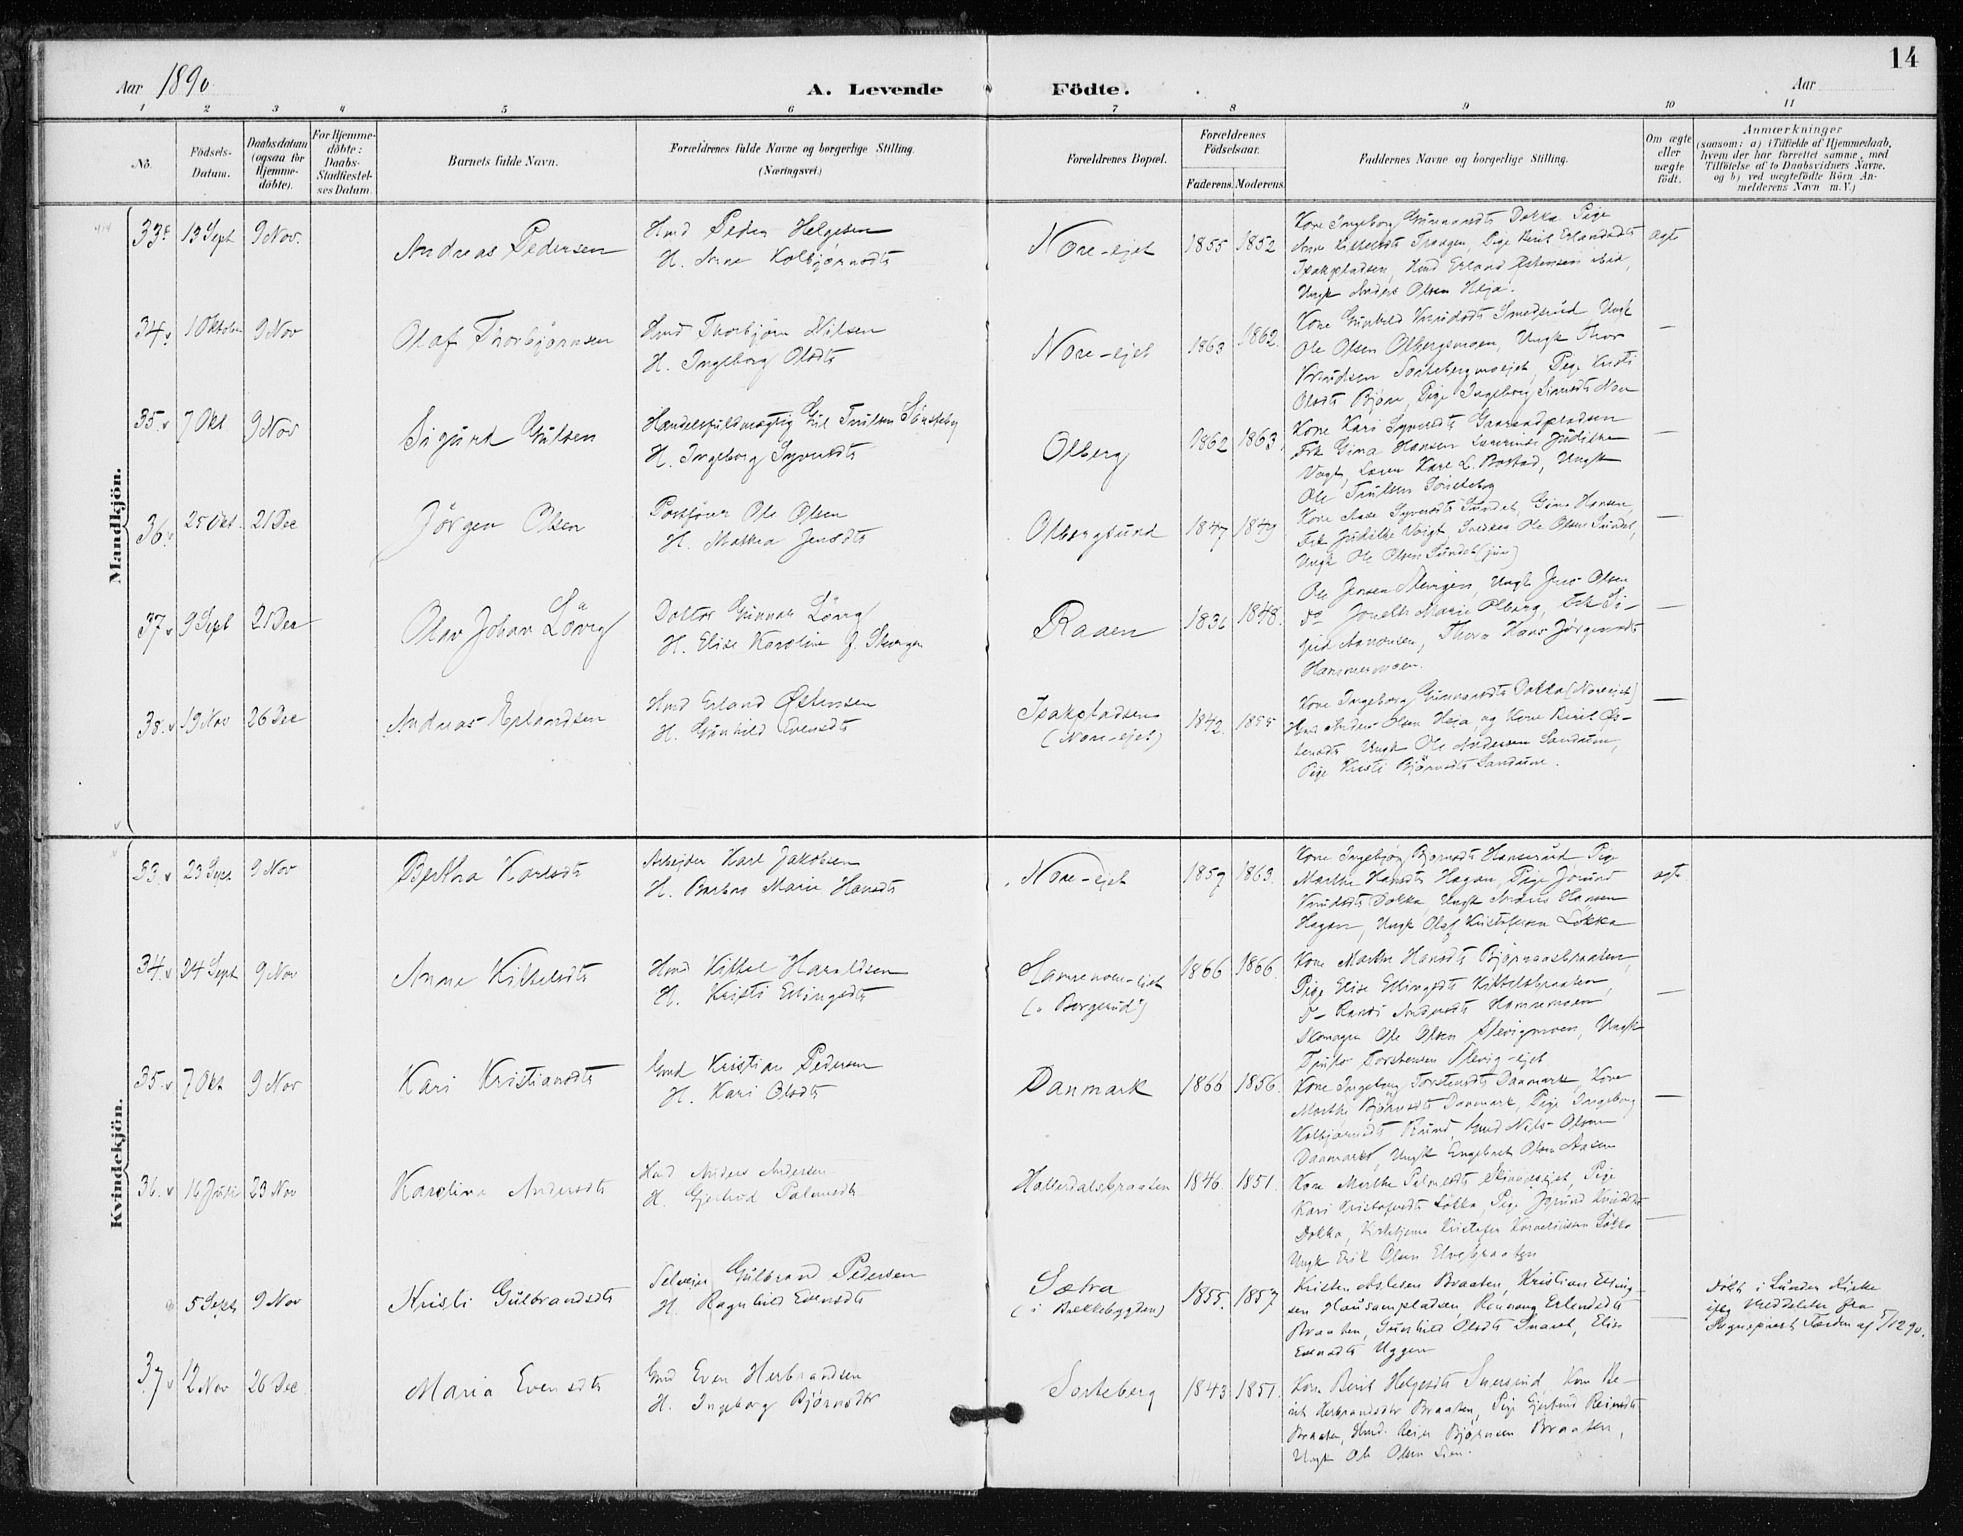 14
Aar 1890.
A. Levende Födte.
Aar
1 2 3 4 5 6 7 8 9 10 11
No.
Födsels-
Datum.
Daabsdatum
(ogsaa for
Hjemme-
döbte).
For Hjemme-
döbte:
Daabs-
Stadfæstel-
ses Datum.
Barnets fulde Navn.
Forældrenes fulde Navne og borgerlige Stilling.
(Næringsvei.)
Forældrenes Bopæl.
Forældrenes
Födselsaar.
Faderens. Moderens.
Faddernes Navne og borgerlige Stilling.
Om ægte
eller
uægte
födt.
Anmærkninger
(saasom: a) i Tilfælde af Hjemmedaab,
hvem der har forrettet samme, med
Tilföielse af to Daabsvidners Navne.
og b) ved uægtefödte Börn An-
melderens Navn m. V.)
Mandkjön.
33 13 Sept 9 Nov. Andreas Pedersen
Hmd Peder Helgesen
H. Anne Kolbjørnsdts
Nore-ejet 1855 1852
Kone Ingeborg Gunnarsdts Dokka Pige
Anne Kittelsdts Pige Berit Erlandsdts
Isakpladsen, Hmd Erland Østensen ibid,
Ungk Anders Olsen Heja.
ægte
34. 1 Oktober 9 Nov Olaf Thorbjørnsen
Hmd Thorbjørn Nilsen
H. Ingeborg Olsdts
Nore-ejet 1863 1862.
Kone Gunhild Knudsdts Smedsrud Ungk
Ole Olsen Olbergsmoen, Ungk Thor
Knudsen Sortebergmoejet, Pige Kristi
Olsdts Bjøre, Pige Ingeborg Simensdts Nore
—
35. 7 Okt. 9 Nov Sigurd Gulsen
Handelsfuldmægtig Gul Trulsen Sönsteby
H. Ingeborg Syversdts
Olberg 1862 1863.
Kone Kari Syversdts Gaarandpladsen
Frk Gina Hansen Lærerinde Judithe
Vogt, Lærer Karl L. Bostad, Ungk
Ole Trulsen Sönsteby
—
36. 25 Okt. 21 Dec Jørgen Olsen
Postfører Ole Olsen
H. Mathea Jensdts
Olbergsund 1847 1849
Kone Aase Syversdts Sundet, Gina Hansen,
Frk Judithe Voigt, Snedker Ole Olsen Sundet,
Ungk Ole Olsen Sundet (jun)
—
37. 9 Sept 21 Dec Olav Johan Lövig
Doktor Gunnar Lövig
H. Elise Karoline f.
Raaen 1848.
Ole Jensen Ungk Jens Olsen
Do Marie Olberg, Frk Si-
grid Thora Hans Jørgensdts
Hammersmoen.
—
38. 19 Nov 26 Dec Andreas Erlandsen
Hmd Erland Østensen
H. Gunhild Evensdts
Isakpladsen
(Nore-ejet)
1842. 1855
Kone Ingeborg Gunnarsdts Dokka (Noreejet)
Hmd Anders Olsen Heja og Kone Berit Øs-
tensdts, Ungk Ole Andersen Sandaune,
Pige Kristi Bjørnsdts Sandaune.
—
Kvindekjön.
33. 23 Sept. 9 Nov Bertha Karlsdts
Arbejder Karl Jakobsen
H. Barbro Marie Hansdts
Nore-ejet 1859 1863.
Kone Ingebjørg Bjørnsdts Hanserud Pige
Marthe Hansdts Hagan, Pige Jorund
Knudsdts Dokka, Ungk Andreas Hansen
Hagan, Ungk Olaf Kristofersen Løkka
ægte
34. 24 Sept 9 Nov Anne Kittelsdts
Hmd Kittel Haraldsen
H. Kristi Ellingsdts
(„Borgerud“)
1866 1866.
Kone Marthe Hansdts Bjørnaasbraaten,
Pige Elise Ellingsdts Kittelsbraaten,
Do Randi Andersdts Hammermoen
Skomager Ole Olsen Slevigmoen, Ungk
Torstensen Slevig-ejet
—
35. 7 Okt 9 Nov Kari Kristiansdts
Gmd Kristian Pedersen
H. Kari Olsdts
Danmark 1866 1856.
Kone Ingeborg Torstensdts Danmark, Kone
Marthe Bjørnsdts Danmark, Pige Ingeborg
Kolbjørnsdts Gmd Nils Olsen
Danmark, Ungk Engebret Olsen Aasen
—
36. 16 Juli 23 Nov Karoline Andersdts
Hmd Anders Andersen
H. Gjertrud Palmesdts
Hallerdalsbraaten 1846 1851.
Kone Marthe Palmesdts Pige
Kari Kristofersdts Løkka, Pige Jorund Knudsdts
Dokka, Kristofer Korneliussen Løkka
Ungk Erik Olsen Elvebraaten
—
5 Sept 9 Nov Kristi Gulbrandsdts
Selvejer Gulbrand Pedersen
H. Ragnhild Evensdts
Sætra
(i Bakkebygden)
1855. 1857
Kristen Braaten, Kristian Elling-
sen Haugampladsen, Rønnaug Erlandsdts
Braaten, Gunhild Olsdts Snaret, Elise
Evensdts Uggen
—
Døbt i Lunden Kirke
ifølg Meddelelse fra
Sognepræst af 5/12 90.
37 12 Nov 26 Dec. Maria Evensdts
Gmd Even Herbrandsen
H. Ingeborg Bjørnsdtr
Sorteberg 1843 1851.
Kone Berit Helgesdts Kone Be-
rit Herbrandsdtr Braaten, Pige Gjertrud Reiersdts
Braaten, Hmd. Reier Bjørnsen Braaten,
Ungk Ole Olsen Lien.